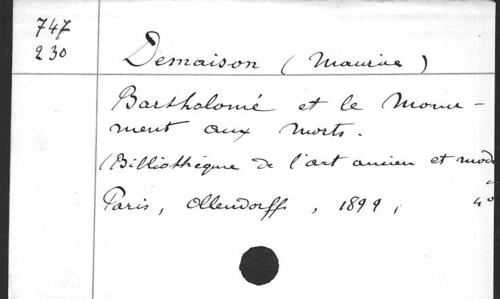 747
230
Demaison (Maurice)
Bartholomé et le Monu-
ment aux Morts.
(Bibliothèque de l'art ancien et mode
Paris, Ollendorff, 1899, 4°